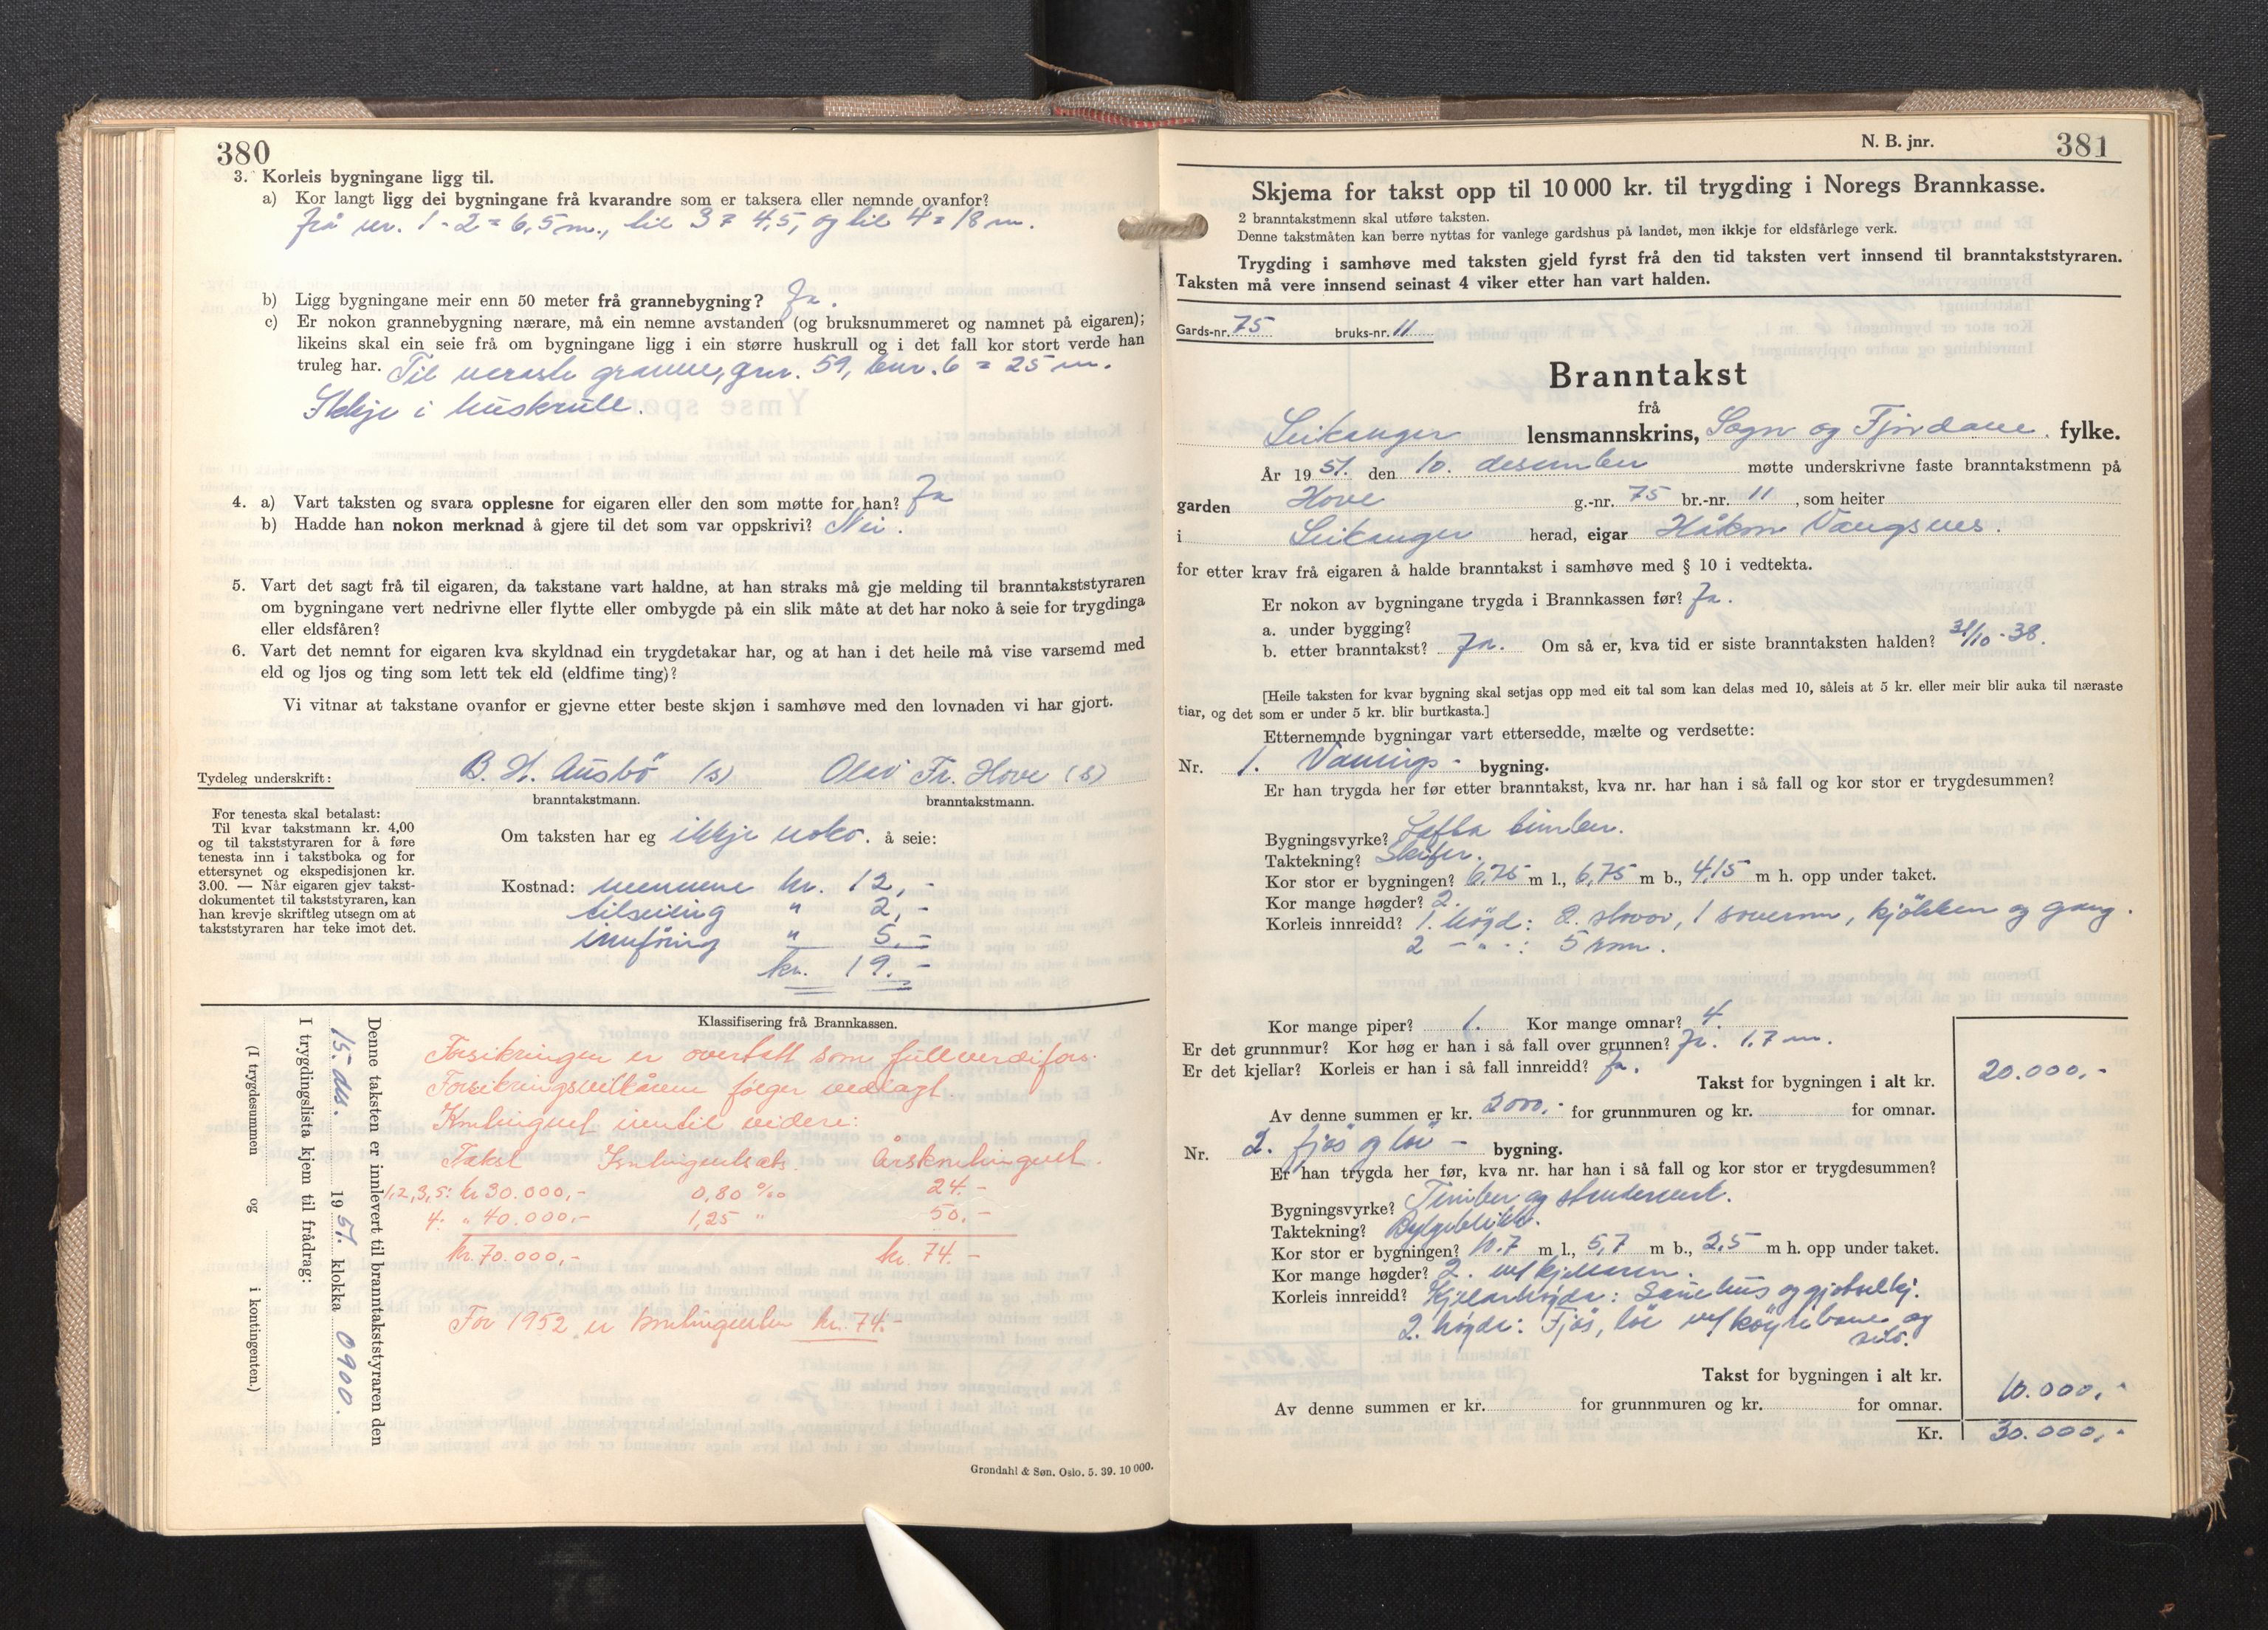 380
3. Korleis bygningane ligg til.
a) Kor langt ligg dei bygningane frå kvarandre som er taksera eller nemnde ovanfor?
frå nr. 1 - 2 = 6,5 m., til 3 = 4,5, og til 4 = 18 m.
b) Ligg bygningane meir enn 50 meter frå grannebygning? Ja.
c) Er nokon grannebygning nærare, må ein nemne avstanden (og bruksnummeret og namnet på eigaren);
likeins skal ein seie frå om bygningane ligg i ein større huskrull og i det fall kor stort verde han
truleg har. Til næraste granne, gnr. 59, bnr. 6 = 25 m.
Ikkje i huskrull.
4. a) Vart taksten og svara opplesne for eigaren eller den som møtte for han? Ja
b) Hadde han nokon merknad å gjere til det som var oppskrivi? Nei.
5. Vart det sagt frå til eigaren, da takstane vart haldne, at han straks må gje melding til branntakststyraren
om bygningane vert nedrivne eller flytte eller ombygde på ein slik måte at det har noko å seie for trygdinga
eller eldsfåren?
6. Vart det nemnt for eigaren kva skyldnad ein trygdetakar har, og at han i det heile må vise varsemd med
eld og ljos og ting som lett tek eld (eldfime ting)?
Vi vitnar at takstane ovanfor er gjevne etter beste skjøn i samhøve med den lovnaden vi har gjort.
Tydeleg underskrift: B. H. Ausbö (s) Olav Fr. Hove (s)
branntakstmann. branntakstmann.
For tenesta skal betalast:
Til kvar takstmann kr. 4,00
og til takststyraren for å føre
tenesta inn i takstboka og for
ettersynet og ekspedisjonen kr.
3.00. — Når eigaren gjev takst-
dokumentet til takststyraren, kan
han krevje skriftleg utsegn om at
takststyraren har teke imot det.
Om taksten har eg ikkje noko. å seie:
Kostnad: mennene kr. 12,-
tilseiing " 2,-
innføring " 5.-
kr. 19.-
Klassifisering frå Brannkassen.
Forsikringen er overtatt som fullverdifors.
Forsikringsvilkårene følger vedlagt
Kontingent inntil videre:
Takst Kontingentsats. Årskontingent.
1,2,3,5: kr 30.000,- 0,80 ‰ 24.-
4: " 40.000,- 1,25 " 50,-
kr. 70.000,- kr. 74.-
For 1952 er kontingenten kr. 74.-
Denne taksten er innlevert til branntakststyraren den
15. des. 1951. klokka 0900.
I trygdingslista kjem til frådrag:
(I trygdesummen og i kontingenten.)
Grøndahl & Søn. Oslo. 5. 39. 10 000.
N. B. jnr. 381
Skjema for takst opp til 10 000 kr. til trygding i Noregs Brannkasse.
2 branntakstmenn skal utføre taksten.
Denne takstmåten kan berre nyttas for vanlege gardshus på landet, men ikkje for eldsfårlege verk.
Trygding i samhøve med taksten gjeld fyrst frå den tid taksten vert innsend til branntakststyraren.
Taksten må vere innsend seinast 4 viker etter han vart halden.
Gards-nr. 75 bruks-nr. 11
Branntakst
frå
Leikanger lensmannskrins, Sogn og Fjordane fylke.
År 1951. den 10. desember møtte underskrivne faste branntakstmenn på
garden Hove g.-nr. 75 br.-nr. 11, som heiter
i Leikanger herad, eigar Håkon Vangsnes.
for etter krav frå eigaren å halde branntakst i samhøve med § 10 i vedtekta.
Er nokon av bygningane trygda i Brannkassen før? Ja.
a. under bygging?
b. etter branntakst? Ja. Om så er, kva tid er siste branntaksten halden? 31/10-38.
[Heile taksten for kvar bygning skal setjas opp med eit tal som kan delas med 10, såleis at 5 kr. eller meir blir auka til næraste
tiar, og det som er under 5 kr. blir burtkasta.]
Etternemnde bygningar vart ettersedde, mælte og verdsette:
Nr. 1. Vånings- bygning.
Er han trygda her før etter branntakst, kva nr. har han i så fall og kor stor er trygdesummen?
Bygningsvyrke? Lafta timber.
Taktekning? Skifer.
Kor stor er bygningen? 6,75 m l., 6,75 m b., 4,15 m h. opp under taket.
Kor mange høgder? 2.
Korleis innreidd? 1. høgd: 2. stover, 1 soverom, kjökken og gang.
2 - " - : 5 rom.
Kor mange piper? 1. Kor mange omnar? 4.
Er det grunnmur? Kor høg er han i så fall over grunnen? Ja. 1.7 m.
Er det kjellar? Korleis er han i så fall innreidd? Ja.
Takst for bygningen i alt kr. 20.000,-
Av denne summen er kr. 2000,- for grunnmuren og kr. for omnar.
Nr. 2. fjøs og löe - bygning.
Er han trygda her før, kva nr. har han i så fall og kor stor er trygdesummen?
Bygningsvyrke? Timber og stenderverk.
Taktekning? Bylgeblikk.
Kor stor er bygningen? 10.7 m l., 5,7 m b., 2,5 m h. opp under taket.
Kor mange høgder? 2. m/ kjellaren.
Korleis innreidd? Kjellarhøgda: Sauehus og gjødselkj.
2. høgde: Fjøs, löe m/ köyrebane og
silo.
Takst for bygningen i alt kr. 10.000,-
Av denne summen er kr. for grunnmuren og kr. for omnar.
Kr. 30.000,-